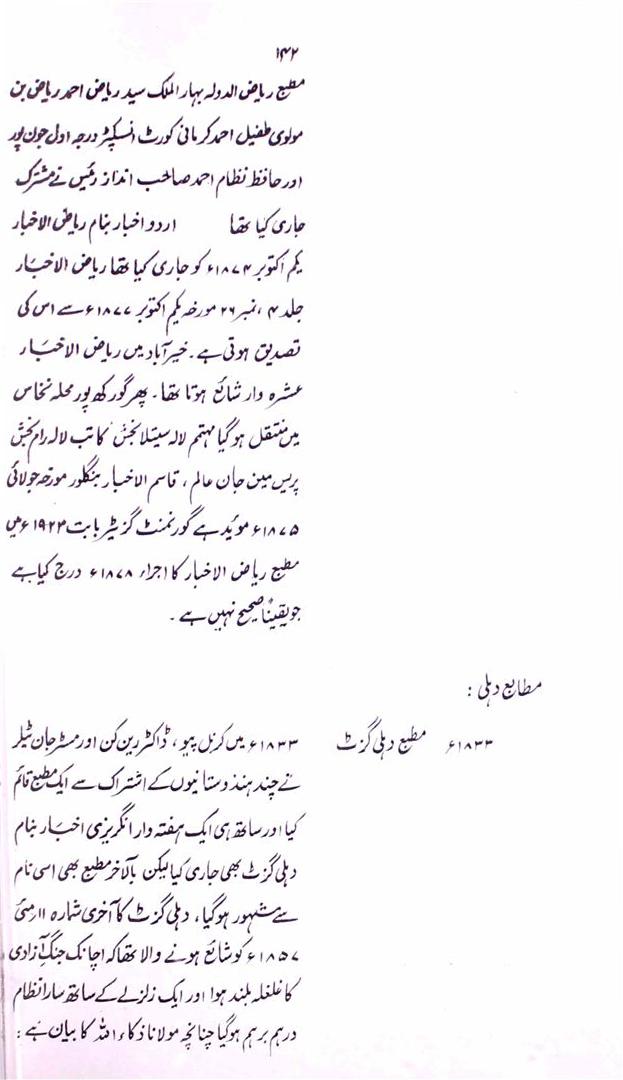 ۱۴۲
مطبع ریاض الدولہ بہار الملک سید ریاض احمد ریاض بن
مولوی طفیل احمد کرمانی کورٹ انسپکٹر درجہ اول جون پور
اور حافظ نظام احمد صاحب انداز رئیس نے مشترک
جاری کیا تھا اردو اخبار بنام ریاض الاخبار
یکم اکتوبر ۱۸۷۴ء کو جاری کیا تھا ریاض الاخبار
جلد ۴، نمبر ۲۶ مورخہ یکم اکتوبر ۱۸۷۷ء سے اس کی
تصدیق ہوتی ہے۔ خیرآباد میں ریاض الاخبار
عشرہ وار شائع ہوتا تھا۔ پھر گورکھ پور محلہ نخاس
میں منتقل ہوگیا مہتمم لالہ سیتلا بخش کاتب لالہ رام بخش
پریس مین جان عالم، قاسم الاخبار بنگلور مورخہ جولائی
۱۸۷۵ء موئید ہے گورنمنٹ گزیٹر بابت ۱۹۲۳ء میں
مطبع ریاض الاخبار کا اجراء ۱۸۷۸ء درج کیا ہے
جو یقیناً صحیح نہیں ہے۔
مطابع دہلی :
۱۸۳۳ء مطبع دہلی گزٹ ۱۸۳۳ء میں کرنل پیو، ڈاکٹر رین کن اور مسٹر جان ٹیلر
نے چند ہندوستانیوں کے اشتراک سے ایک مطبع قائم
کیا اور ساتھ ہی ایک ہفتہ وار انگریزی اخبار بنام
دہلی گزٹ بھی جاری کیا لیکن بالآخر مطبع بھی اسی نام
سے مشہور ہوگیا، دہلی گزٹ کا آخری شمارہ ۱۱ مئی
۱۸۵۷ء کو شائع ہونے والا تھا کہ اچانک جنگ آزادی
کا غلغلہ بلند ہوا اور ایک زلزلے کے ساتھ سارا نظام
درہم برہم ہوگیا چنانچہ مولانا ذکاء اللہ کا بیان ہے :